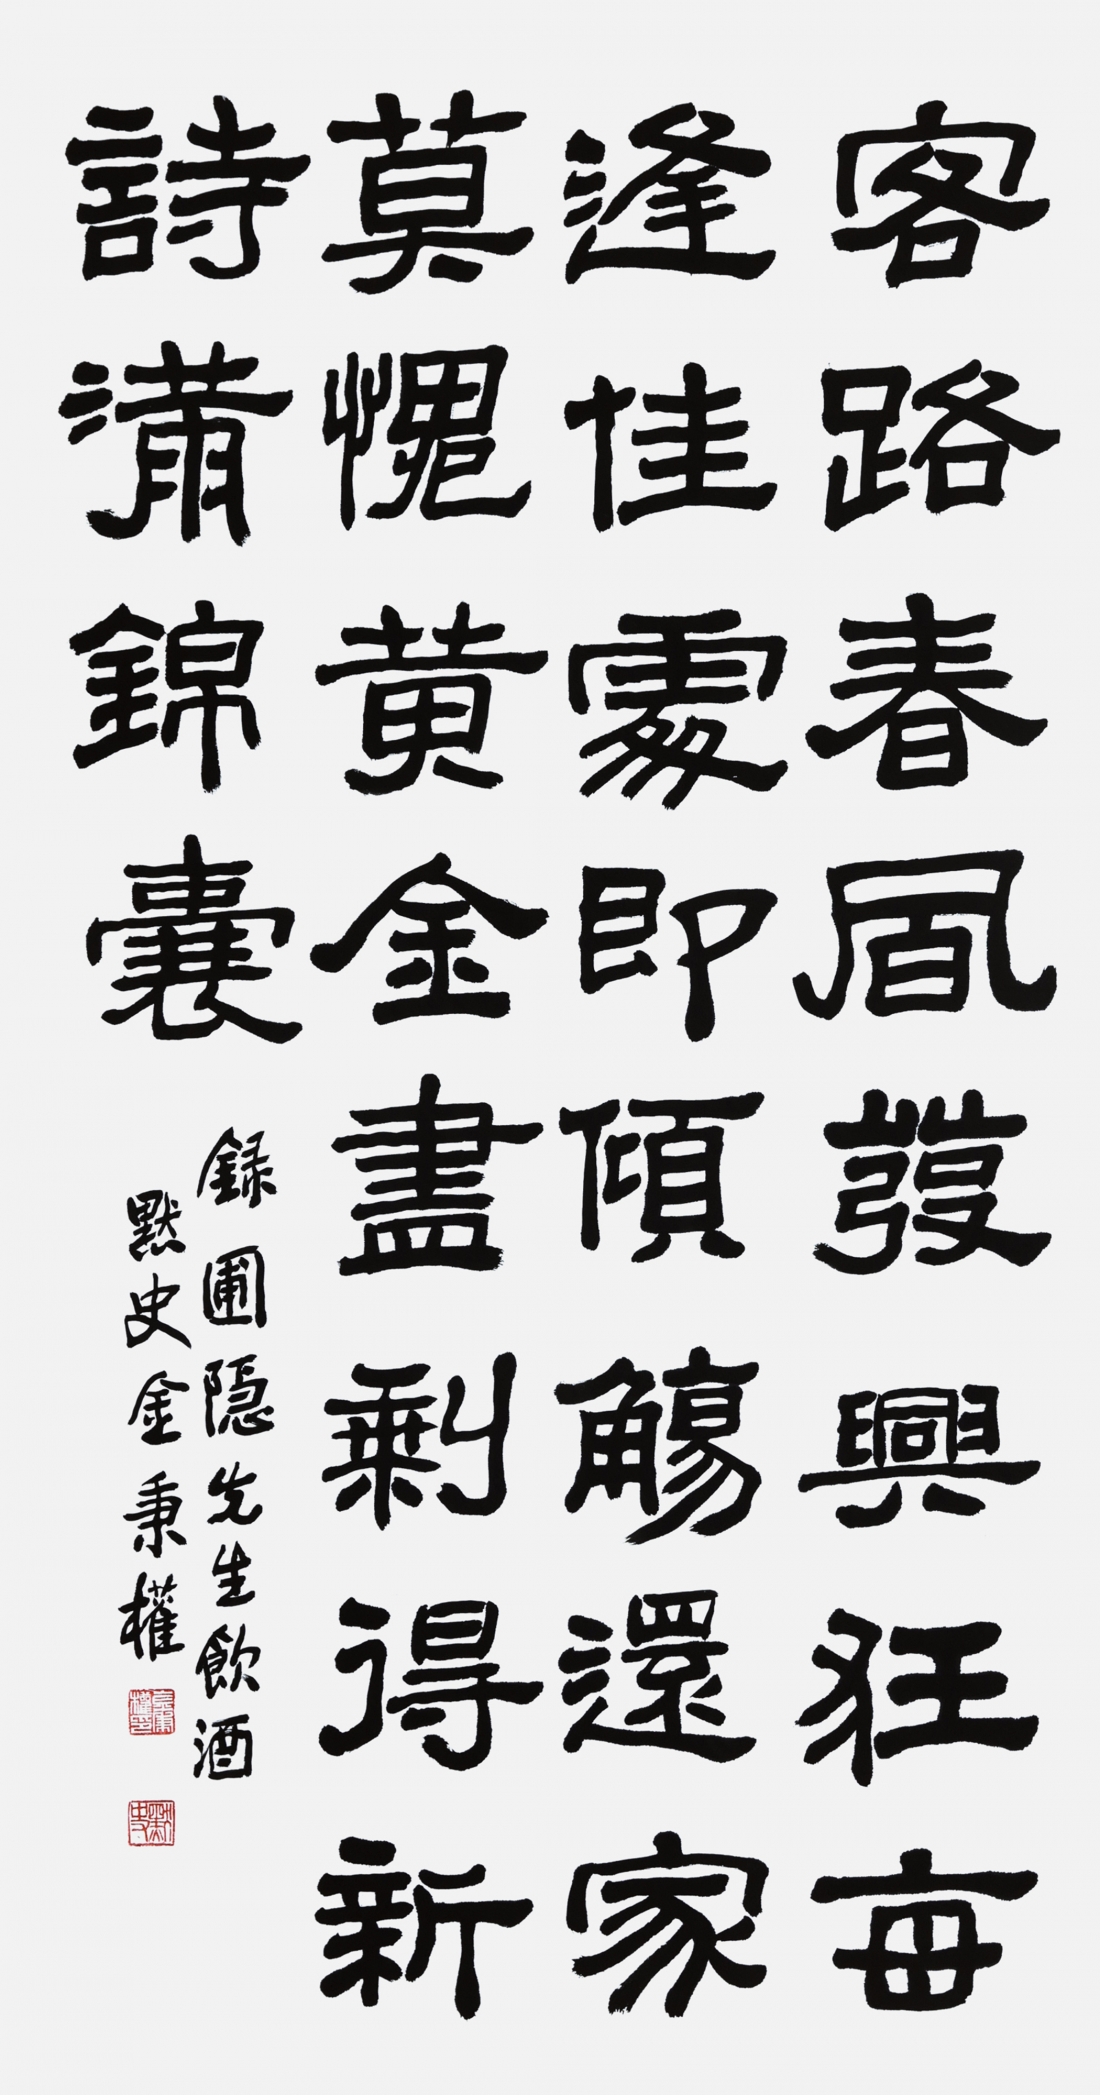 客路春風發興狂每
逢佳處即傾觴還家
莫愧黃金盡剩得新
詩滿錦囊
録圃隱先生飲酒
默史金秉權